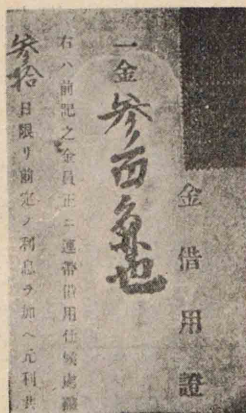 金借用證
一金參百円也
右ハ前記之金員正ニ連帶借用仕候處確
參拾日限リ前定ノ利息ヲ加ヘ元利共